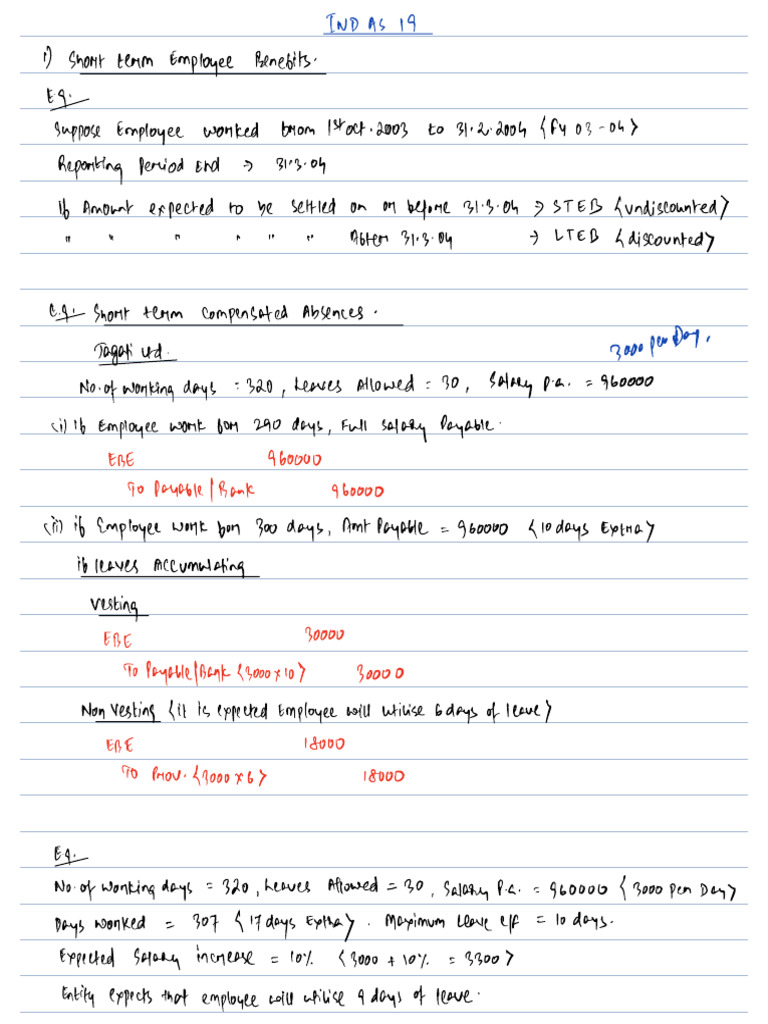 IND AS 19
1) Short term Employee Benefits.
E.g.
Suppose Employee worked from 1st Oct. 2003 to 31.2.2004 {FY 03-04}
Reporting Period End → 31.3.04
If Amount expected to be settled on or before 31.3.04 → STEB {undiscounted}
" " " " " " After 31.3.04 → LTEB {discounted}
E.g. Short term Compensated Absences.
Jagati Ltd.
3000 per Day.
No. of Working days = 320, Leaves Allowed = 30, Salary p.a. = 960000
(i) If Employee work for 290 days, Full Salary Payable.
EBE 960000
To Payable/Bank 960000
(ii) if Employee work for 300 days, Amt Payable = 960000 {10 days Extra}
if leaves Accumulating
Vesting
EBE 30000
To Payable/Bank {3000 x 10} 30000
Non Vesting {it is expected Employee will utilise 6 days of leave}
EBE 18000
To Prov. {3000 x 6} 18000
Eg.
No. of Working days = 320, Leaves Allowed = 30, Salary P.a. = 960000 {3000 per Day}
Days worked = 307 {17 days Extra}. Maximum leave c/f = 10 days.
Expected Salary increase = 10% {3000 + 10% = 3300}
Entity expects that employee will utilise 9 days of leave.